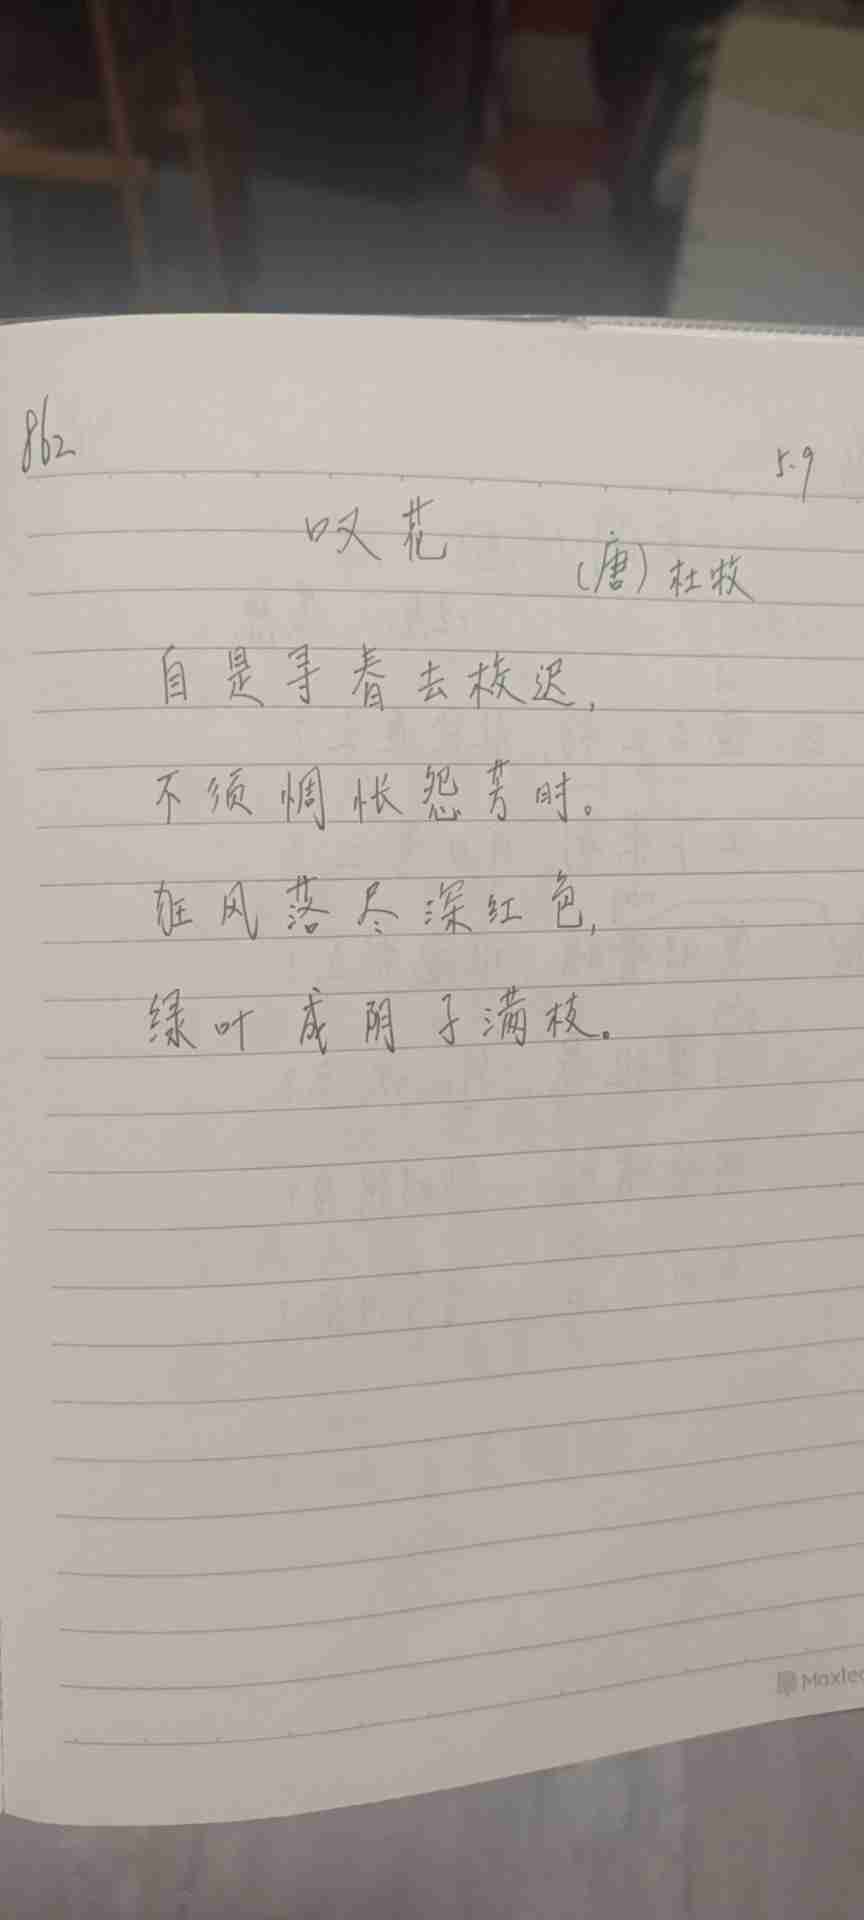 862
5.9
叹花
(唐)杜牧
自是寻春去校迟,
不须惆怅怨芳时。
狂风落尽深红色,
绿叶成阴子满枝。
Maxlea